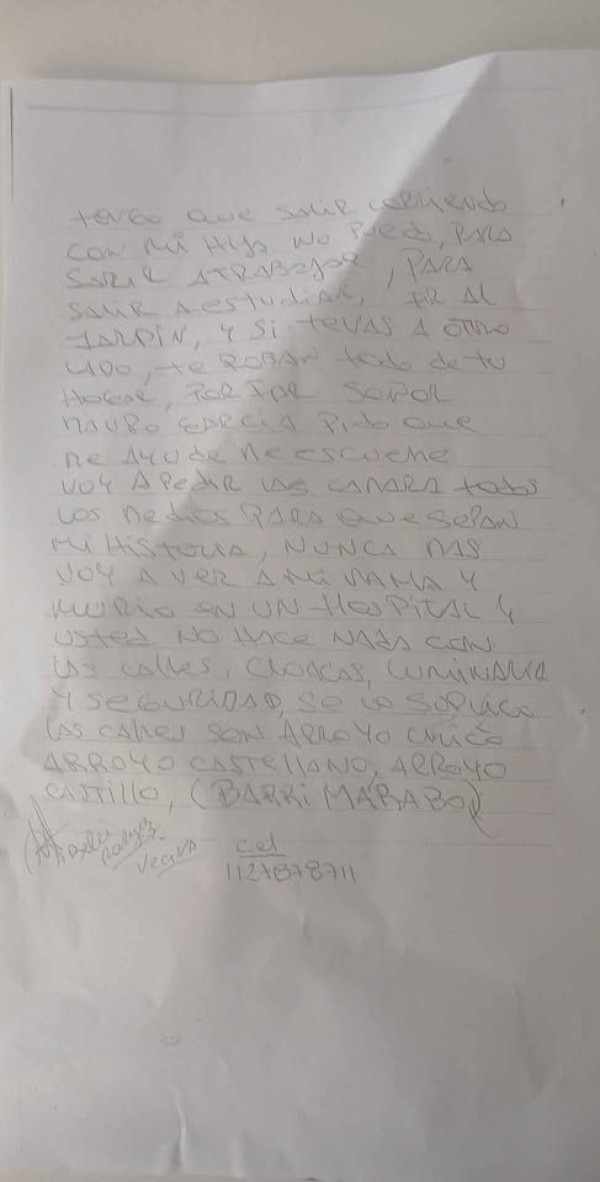 tengo que salir corriendo
con mi hijo no puedo, para
salir a trabajar, para
salir a estudiar, ir al
Jardin, y si te vas a otro
lado, te roban todo de tu
hogar, por far señor
Mauro Garcia pido que
me ayude me escuche
voy a pedir las camara todos
los medios para que sepan
mi historia, nunca mas
voy a ver a mi mama y
murio en un hospital y
usted no hace nada con
las calles, cloacas, luminaria
y seguridad, se lo suplico
las calles son Arroyo chico
Arroyo Castellano, Arroyo
Castillo, (Barri Marabo)
vecina Cel
1127878711